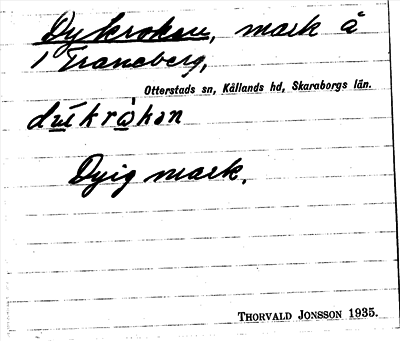 Dykroken, mark å
1 Traneberg,
Otterstads sn, Kållands hd, Skaraborgs län.
Dyig mark.
THORVALD JONSSON 1935.